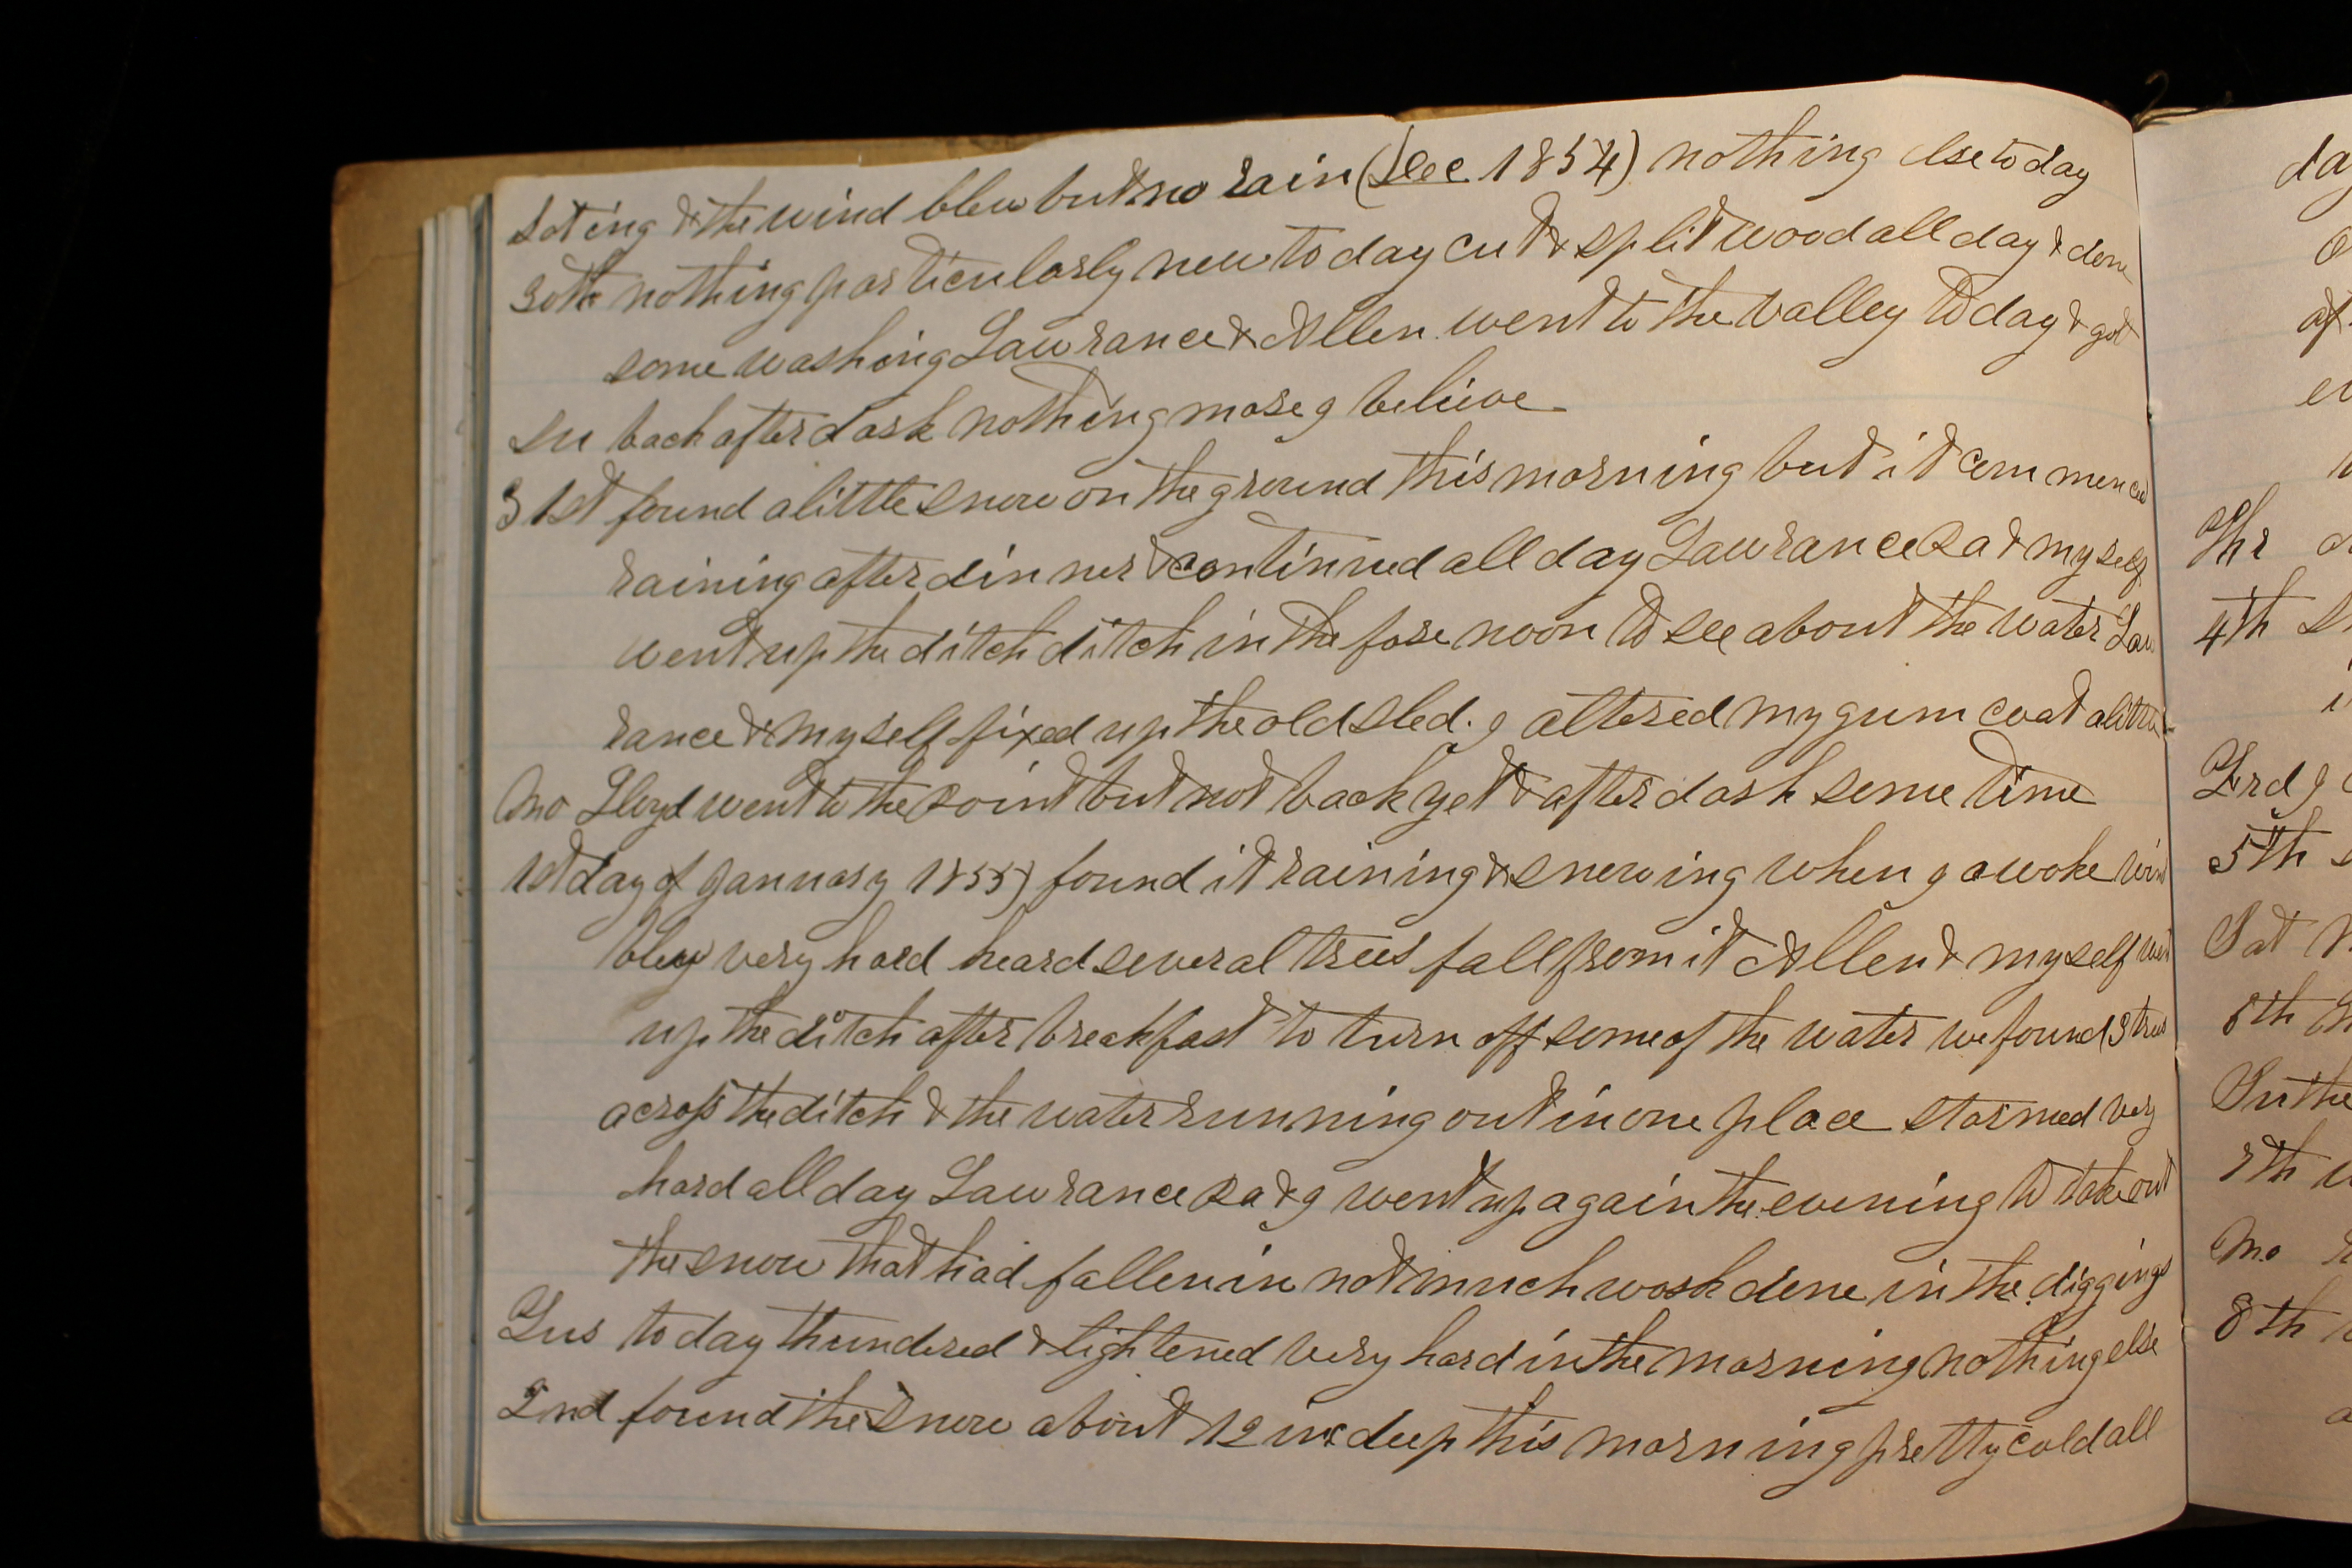 Sat ing & the wind blew but no rain (Dec 1854) nothing else to day
30th nothing particularly new to day cut & split wood all day & done
some washing Lawrance & Allen went to the valley to day & got
Su back after dark nothing more I believe
31st found a little snow on the ground this morning but it commenced
raining after dinner & continued all day Lawrance Pa & myself
went up the ditch ditch in the fore noon to see about the water Law
rance & myself fixed up the old sled. I altered my gum coat a little
Mo Lloyd went to the Point but not back yet & after dark some time
1st day of January 1855) found it raining & snowing when I awoke wind
blew very hard heard several trees fall from it Allen & myself went
up the ditch after breakfast to turn off some of the water we found 3 trees
across the ditch & the water running out in one place stormed very
hard all day Lawrance Pa & I went up again the evening to take out
the snow that had fallen in not much work done in the diggings
Tus to day thundered & lightened very hard in the morning nothing else
2nd found the snow about 12 ins deep this morning pretty cold all
da
af
Thr
4th
3rd I
5th
Sat
6th
Su the
7th
Mo
8th